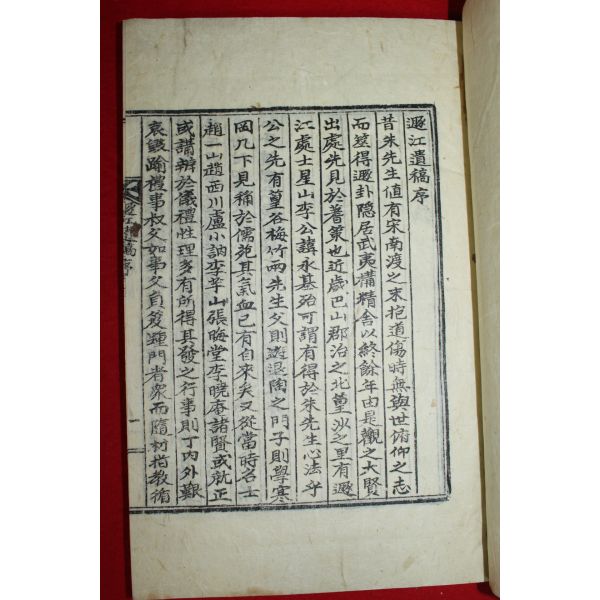 遯江遺稿序
昔朱先生値有宋南渡之末抱道傷時無與世俯仰之志
而筮得遯卦隱居武夷構精舍以終餘年由是觀之大賢
出處先見於蓍策也近歲巴山郡治之北篁沙之里有遯
江處士星山李公諱永基殆可謂有得於朱先生心法乎
公之先有篁谷梅竹兩先生父則遊退陶之門子則學寒
岡几下見稱於儒苑其氣血已有自來矣又從當時名士
趙一山趙西川盧小訥李芋山張晦堂李曉庵諸賢或就正
或講辨於儀禮性理多有所得其發之行事則丁內外艱
哀毁踰禮事叔父如事父負笈踵門者衆而隨材指教循
遯江遺稿序
一